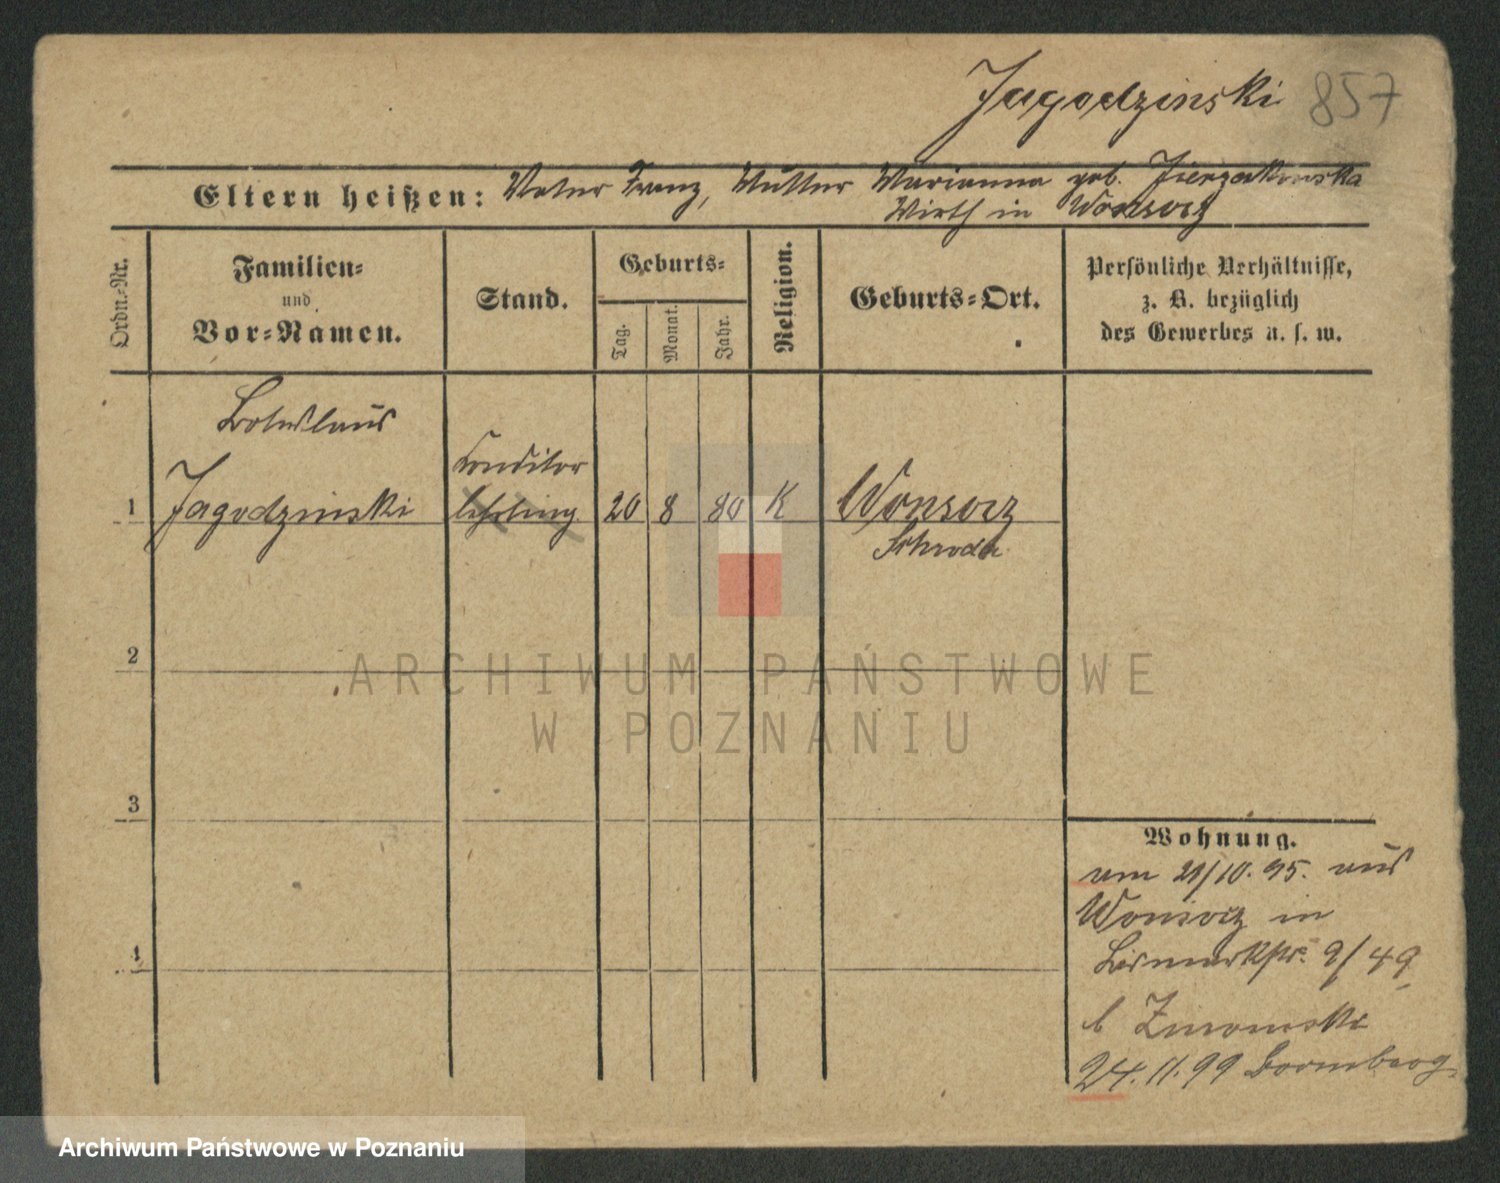 Jagodzinski 857
Eltern heißen: Vater Franz, Mutter Marianna geb.
Wirth in Wonsosz
Ordn.-Nr.
Familien-
und
Vor-Namen.
Stand.
Geburts-
Tag.
Monat.
Jahr.
Religion.
Geburts-Ort.
Persönliche Verhältnisse,
z. B. bezüglich
des Gewerbes u. s. w.
Boleslaus
Conditor
1 Jagodzinski lehrling 20 8 80 K Wonsosz
Schroda
2
3
4
Wohnung.
am 21/10. 95. aus
Wonsosz in
Bismarkstr. 9/49
b
24. 11. 99 Bromberg
ARCHIWUM PAŃSTWOWE
W POZNANIU
Archiwum Państwowe w Poznaniu